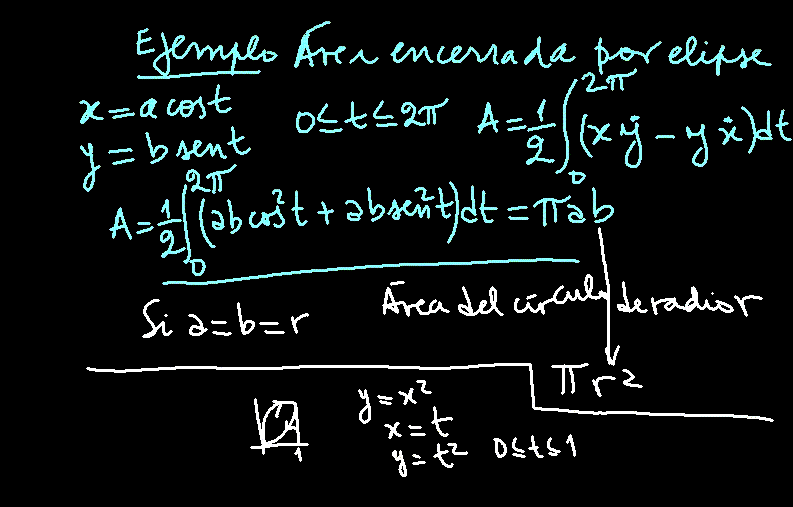 Ejemplo Área encerrada por elipse
x = a cos t   0 ≤ t ≤ 2π   A = 1/2 ∫₀^2π (x ẏ − y ẋ) dt
y = b sen t
A = 1/2 ∫₀^2π (ab cos² t + ab sen² t) dt = π ab
Si a = b = r   Área del círculo de radio r
π r²
y = x²
x = t
y = t²   0 ≤ t ≤ 1
1